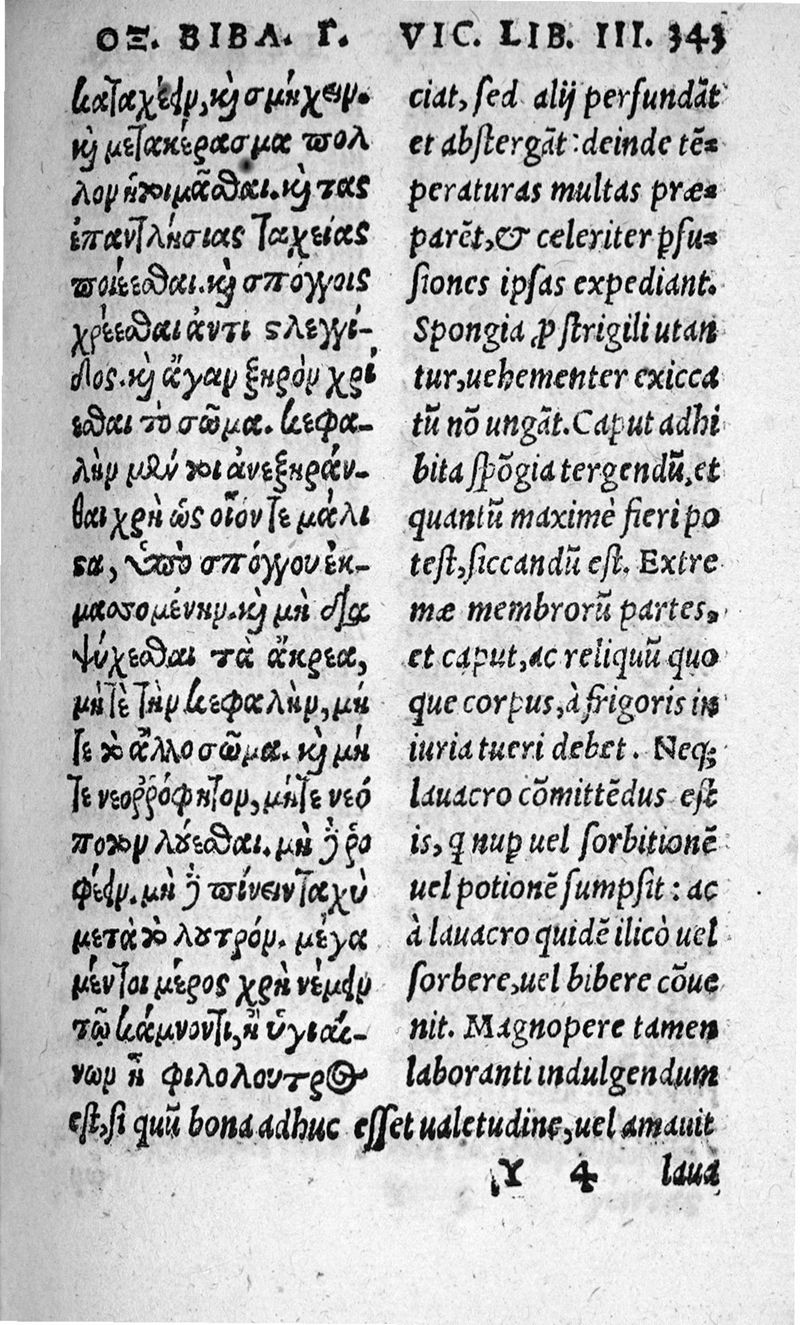 ΟΞ. ΒΙΒΛ. Γ.
καταχέειν, καὶ σμήχειν.
καὶ μετακέρασμα πολ
λὸν ἡτοιμᾶσθαι. καὶ τὰς
ἐπαντλήσιας ταχείας
ποιέεσθαι. καὶ σπόγγοις
χρέεσθαι ἀντὶ στλεγγί-
δος. καὶ ἄγαν ξηρὸν χρί
εσθαι τὸ σῶμα. κεφα-
λὴν μὲν τοι ἀνεξηράν-
θαι χρὴ ὡς οἷόν τε μάλι
στα, ὑπὸ σπόγγου ἐκ-
μασσομένην. καὶ μὴ δια
ψύχεσθαι τὰ ἄκρεα,
μήτε τὴν κεφαλὴν, μή
τε τὸ ἄλλο σῶμα. καὶ μή
τε νεορρόφητον, μήτε νεό
ποτον λούεσθαι. μὴ δὲ ῥο
φέειν. μὴ δὲ πίνειν ταχὺ
μετὰ τὸ λουτρόν. μέγα
μέντοι μέρος χρὴ νέμειν
τῷ κάμνοντι, ἢ ὑγιαί-
νων ᾖ φιλόλουτρος
VIC. LIB. III. 343
ciat, sed alij perfundāt
et abstergāt: deinde tē=
peraturas multas præ=
parēt, & celeriter ꝑfu=
siones ipsas expediant.
Spongia ꝓ strigili utan
tur, uehementer exicca
tū nō ungāt. Caput adhi
bita spōgia tergendū, et
quantū maximè fieri po
test, siccandū est. Extre
mæ membrorū partes,
et caput, ac reliquū quo
que corpus, à frigoris in
iuria tueri debet. Neq;
lauacro cōmittēdus est
is, q nuꝑ uel sorbitionē
uel potionē sumpsit: ac
à lauacro quidē ilicò uel
sorbere, uel bibere cōue
nit. Magnopere tamen
laboranti indulgendum
est, si quū bona adhuc esset ualetudine, uel amauit
Y 4 laua